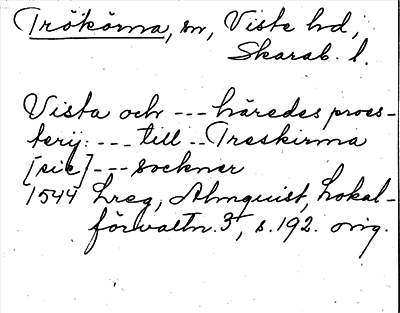 Trökörna, sn, Viste hd,
Skarab. l.
Vista och --- häredes pros-
terij: --- till -- Treskirma
[sic] --- sockner
1544 Lreg, Almquist, Lokal-
förvaltn. 3, s. 192. orig.